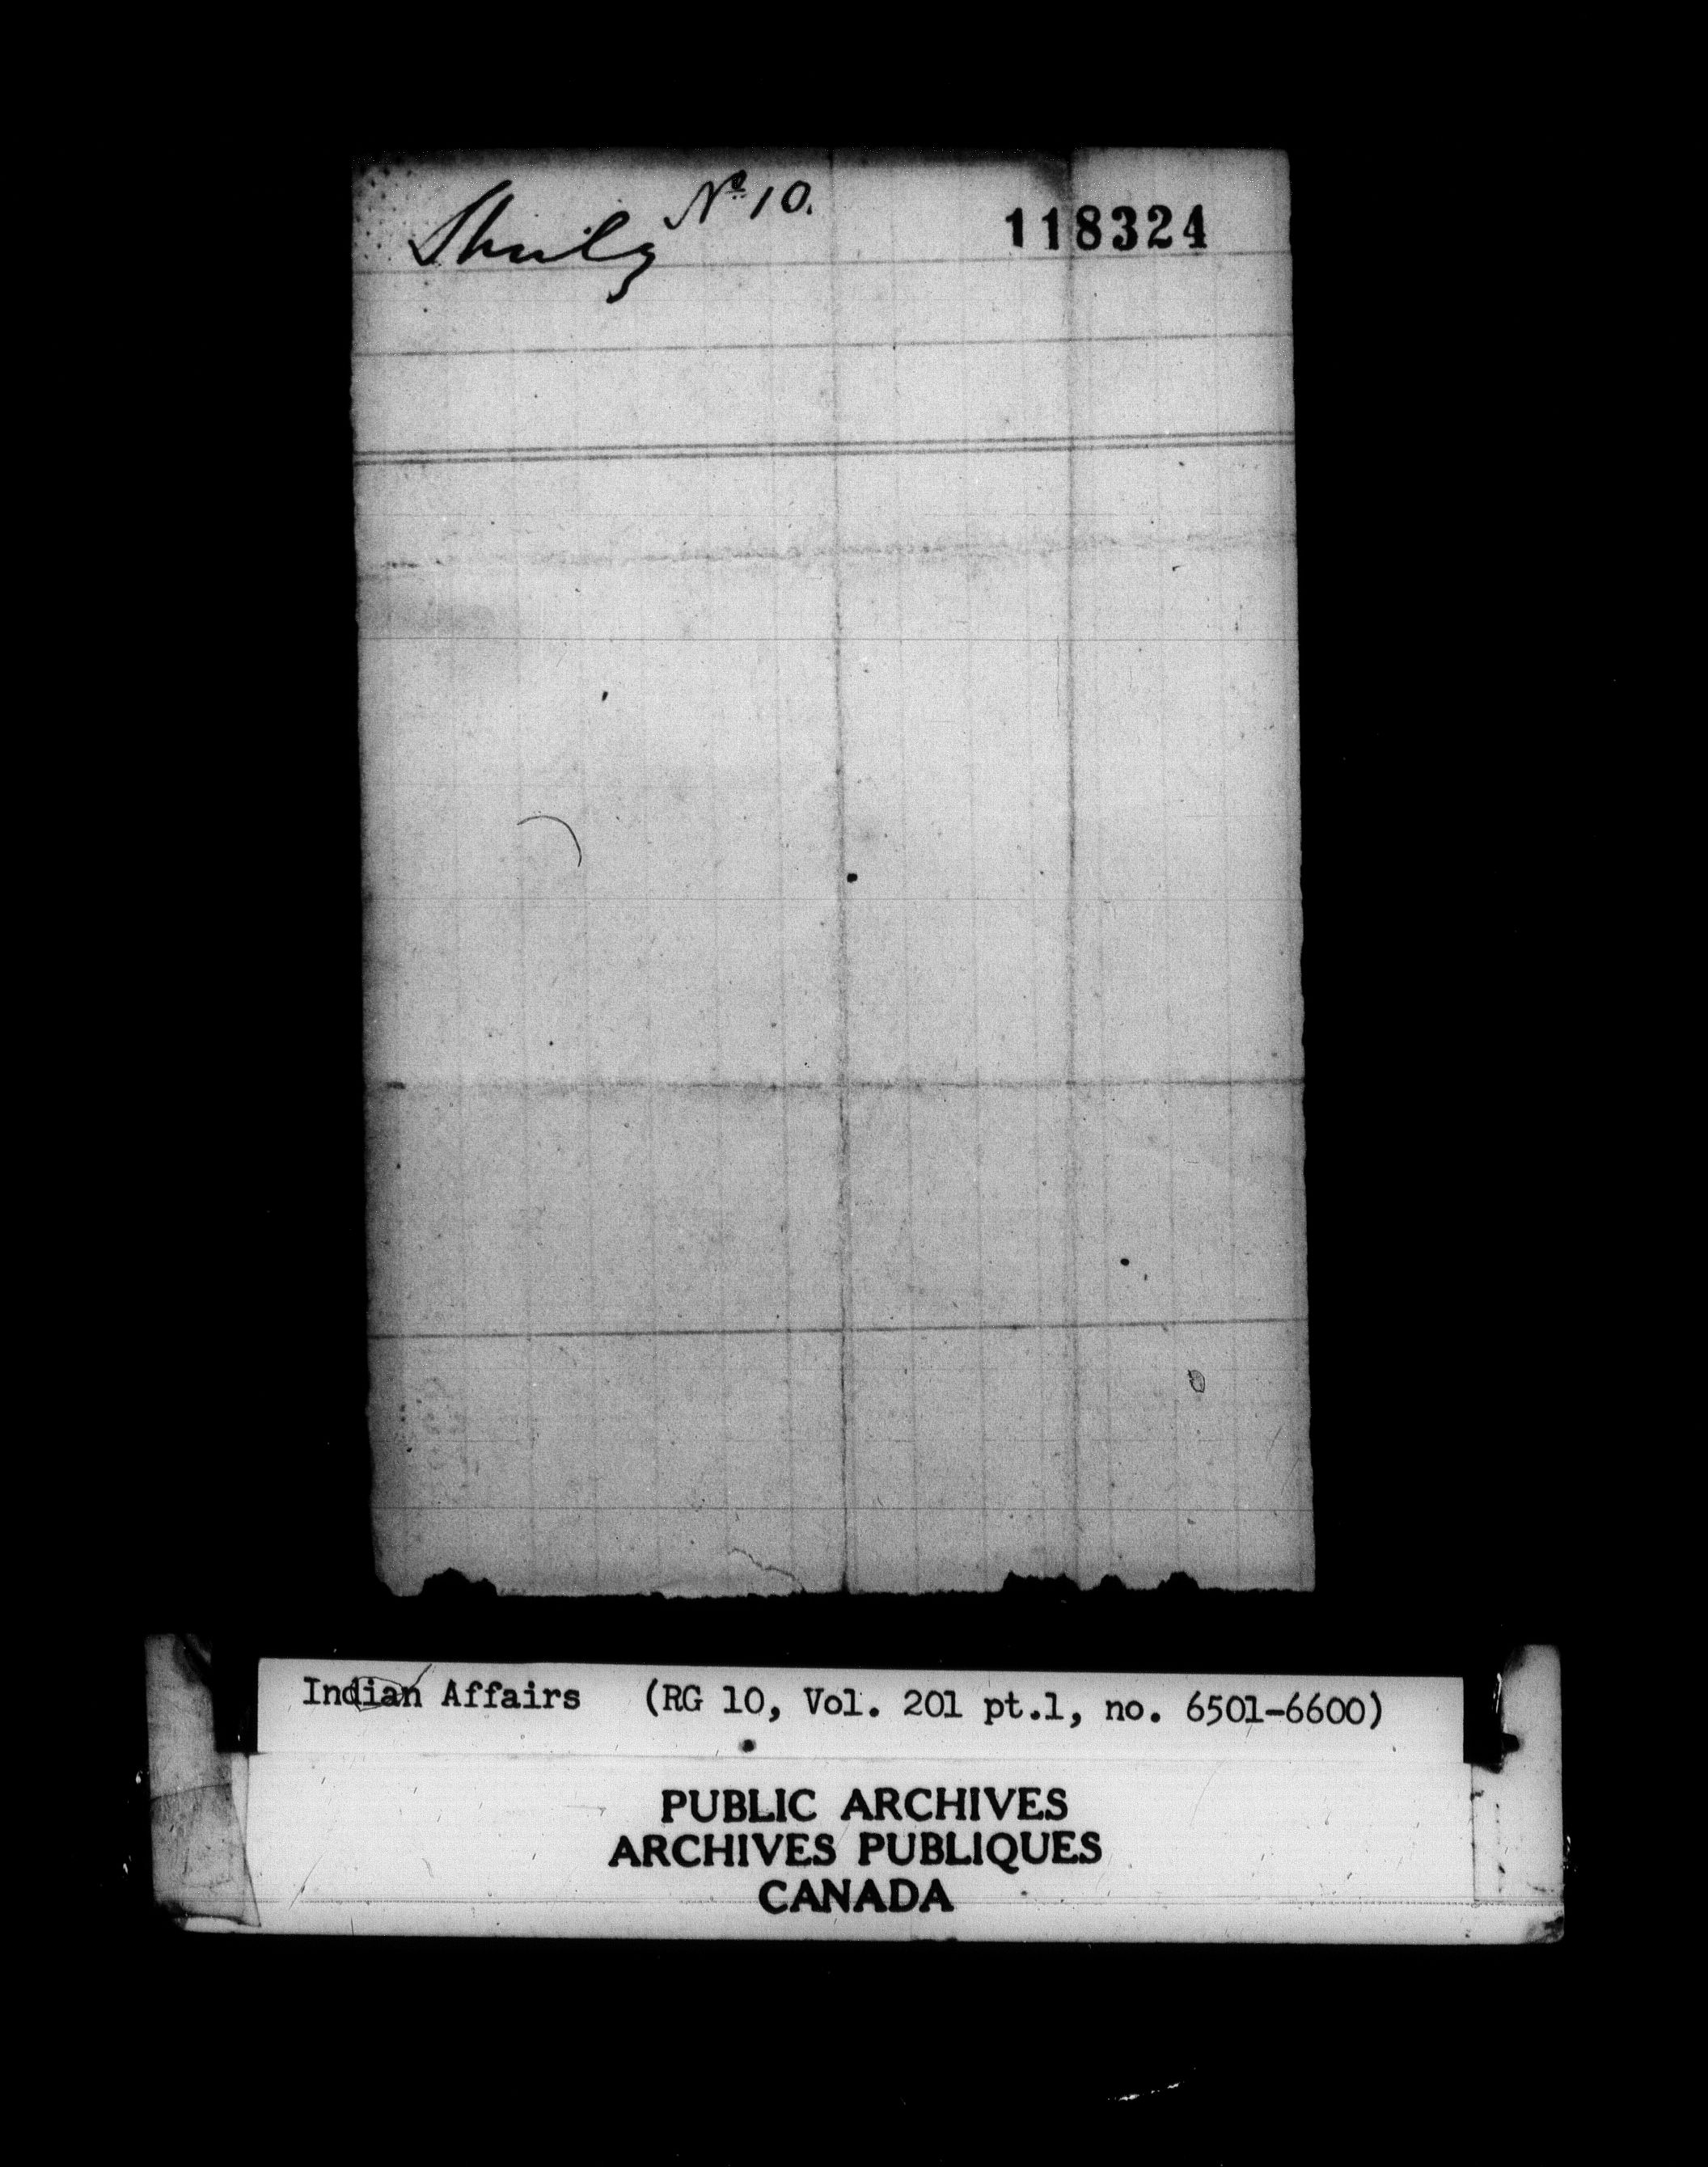 No 10.
118324
Indian Affairs (RG 10, Vol. 201 pt.1, no. 6501-6600)
PUBLIC ARCHIVES
ARCHIVES PUBLIQUES
CANADA